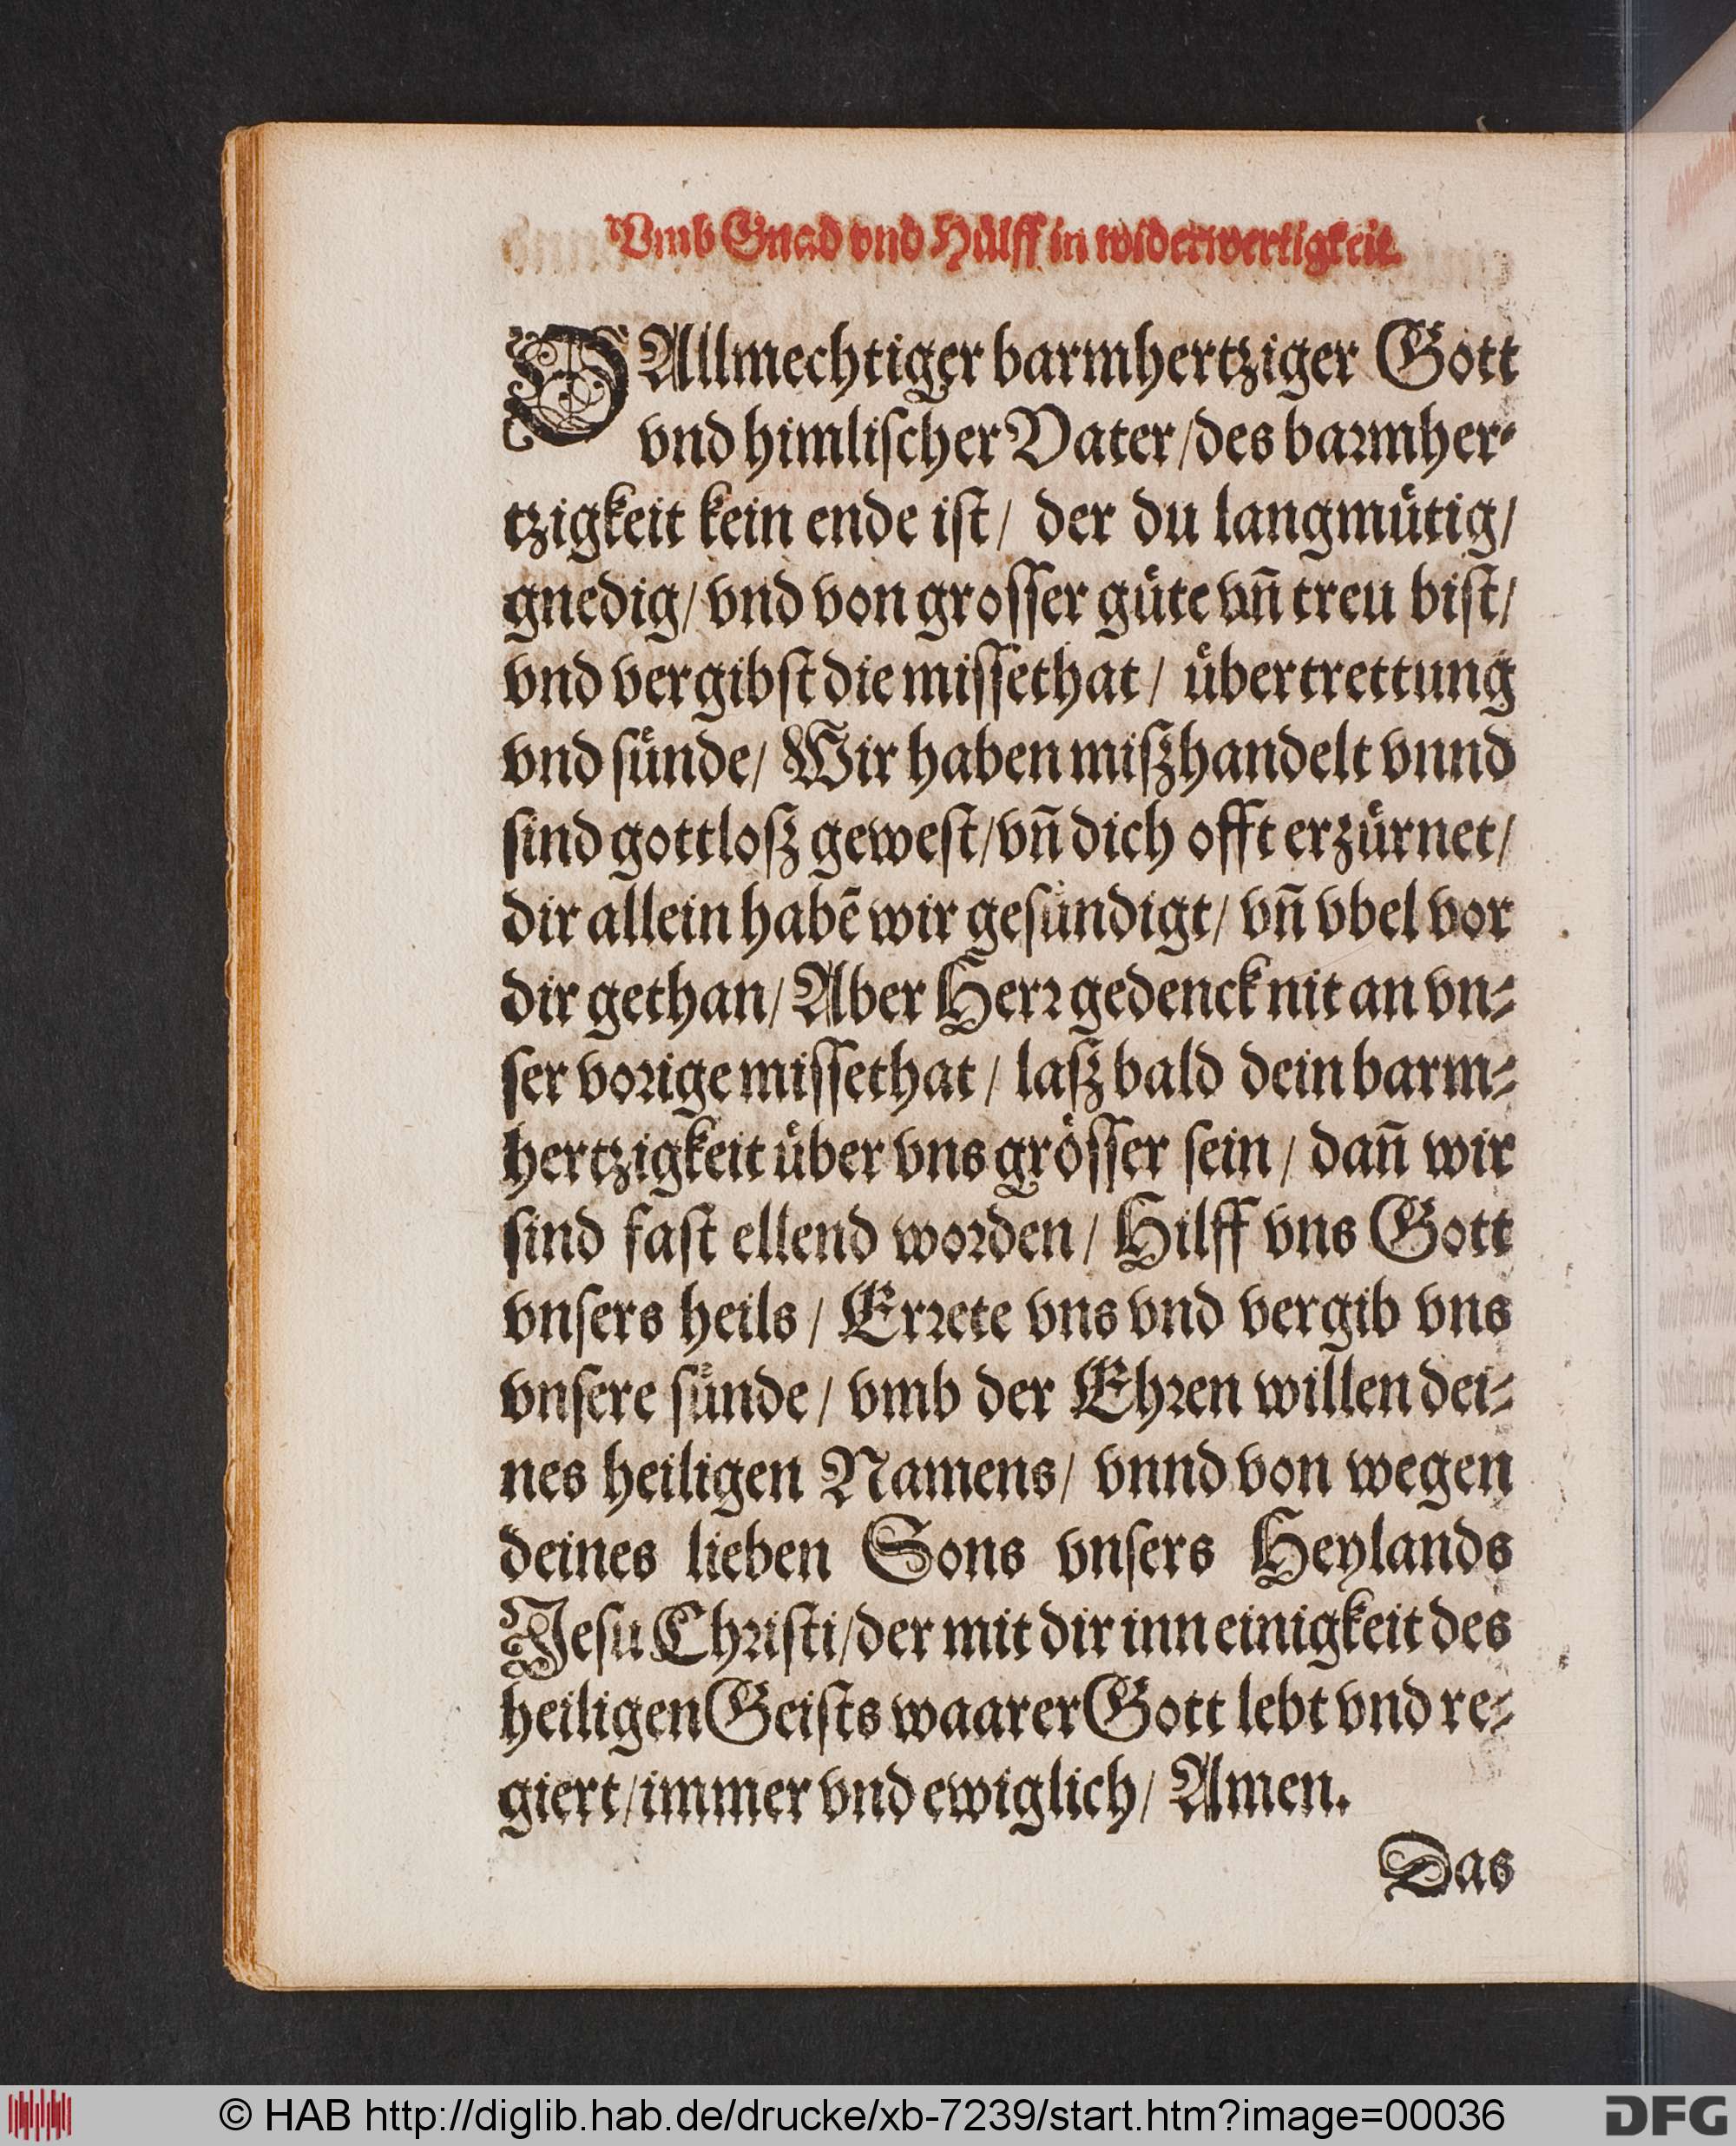 Vmb Gnad vnd Hülff in widerwertigkeit.
O Allmechtiger barmhertziger Gott
vnd himliſcher Vater/des barmher-
tzigkeit kein ende iſt/ der du langmuͤtig/
gnedig/ vnd von groſſer guͤte vñ treu biſt/
vnd vergibſt die miſſethat/ uͤbertrettung
vnd ſuͤnde/ Wir haben miſzhandelt vnnd
ſind gottloſz geweſt/vñ dich offt erzuͤrnet/
dir allein habẽ wir geſuͤndigt/ vñ vbel vor
dir gethan/ Aber Herꝛ gedenck nit an vn-
ſer voꝛige miſſethat/ laſz bald dein barm-
hertzigkeit uͤber vns groͤſſer ſein/ dañ wir
ſind faſt ellend woꝛden/ Hilff vns Gott
vnſers heils/ Erꝛete vns vnd vergib vns
vnſere ſuͤnde/ vmb der Ehꝛen willen dei-
nes heiligen Namens/ vnnd von wegen
deines lieben Sons vnſers Heylands
Jeſu Chꝛiſti/der mit dir inn einigkeit des
heiligen Geiſts waarer Gott lebt vnd re-
giert/immer vnd ewiglich/ Amen.
Das
© HAB http://diglib.hab.de/drucke/xb-7239/start.htm?image=00036
DFG